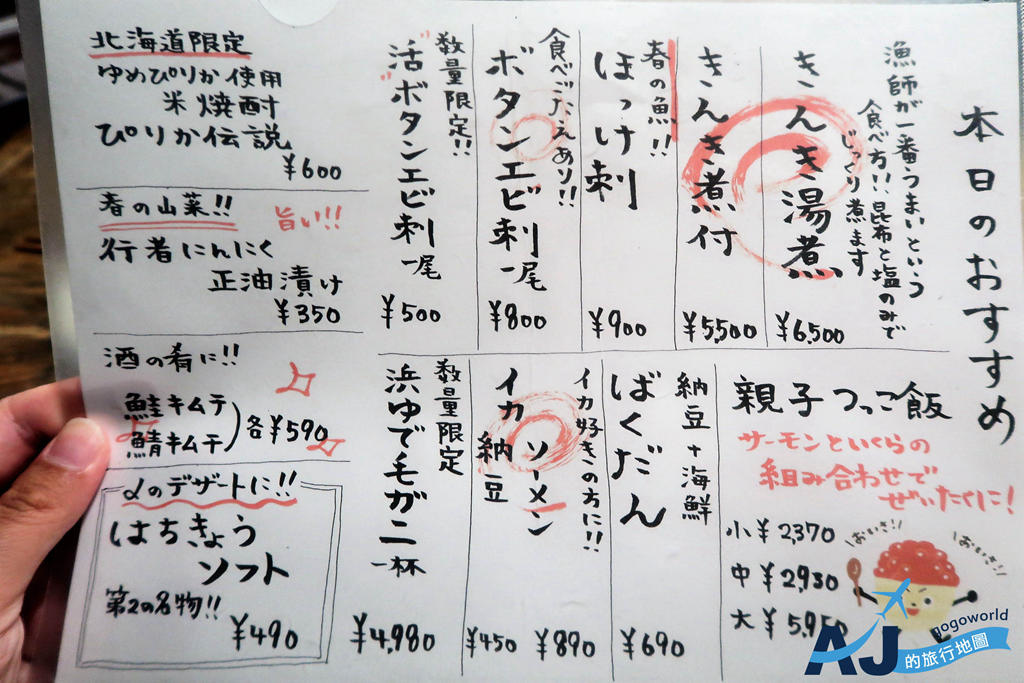 本日のおすすめ
漁師が一番うまいという
食べ方!!昆布と塩のみで
じっくり煮ます
きんき湯煮
¥6,500
きんき煮付
¥5,500
春の魚!!
ほっけ刺
¥900
食べごたえあり!!
ボタンエビ刺一尾
¥800
数量限定!!
活ボタンエビ刺一尾
¥500
親子つっこ飯
サーモンといくらの
組み合わせで
ぜいたくに!
小¥2,370
中¥2,930
大¥5,950
おいさ!!
おいさ!!
納豆+海鮮
ばくだん
¥690
イカ好きの方に!!
イカ
ソーメン
¥890
納豆
¥450
数量限定
浜ゆで毛ガニ一杯
¥4,980
北海道限定
ゆめぴりか使用
米焼酎
ぴりか伝説
¥600
春の山菜!!
旨い!!
行者にんにく
正油漬け
¥350
酒の肴に!!
鮭キムチ
鯖キムチ
各¥590
〆のデザートに!!
はちきょう
ソフト
第2の名物!!
¥490
gogoworld
AJ的旅行地圖